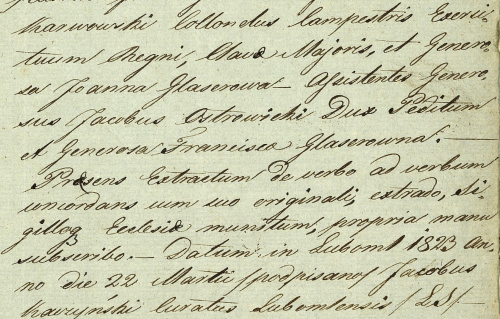 Karwowski Collondus Campestris Exerci-
tuum Regni, Clavæ Majoris, et Genero-
sa Joanna Glaserowa – Assistentes Genero-
sus Jacobus Ostrowicki Dux Peditum
et Generosa Francisca Glaserowna. –
Præsens Extractum de verbo ad verbum
concordans cum suo originali, extrado, Si-
gilloq Ecclesiæ munitum, propria manu
subscribo. – Datum in Luboml 1823 An-
no die 22 Martii /podpisano/ Jacobus
Karzyński Curatus Lubomlensis /LS/ –